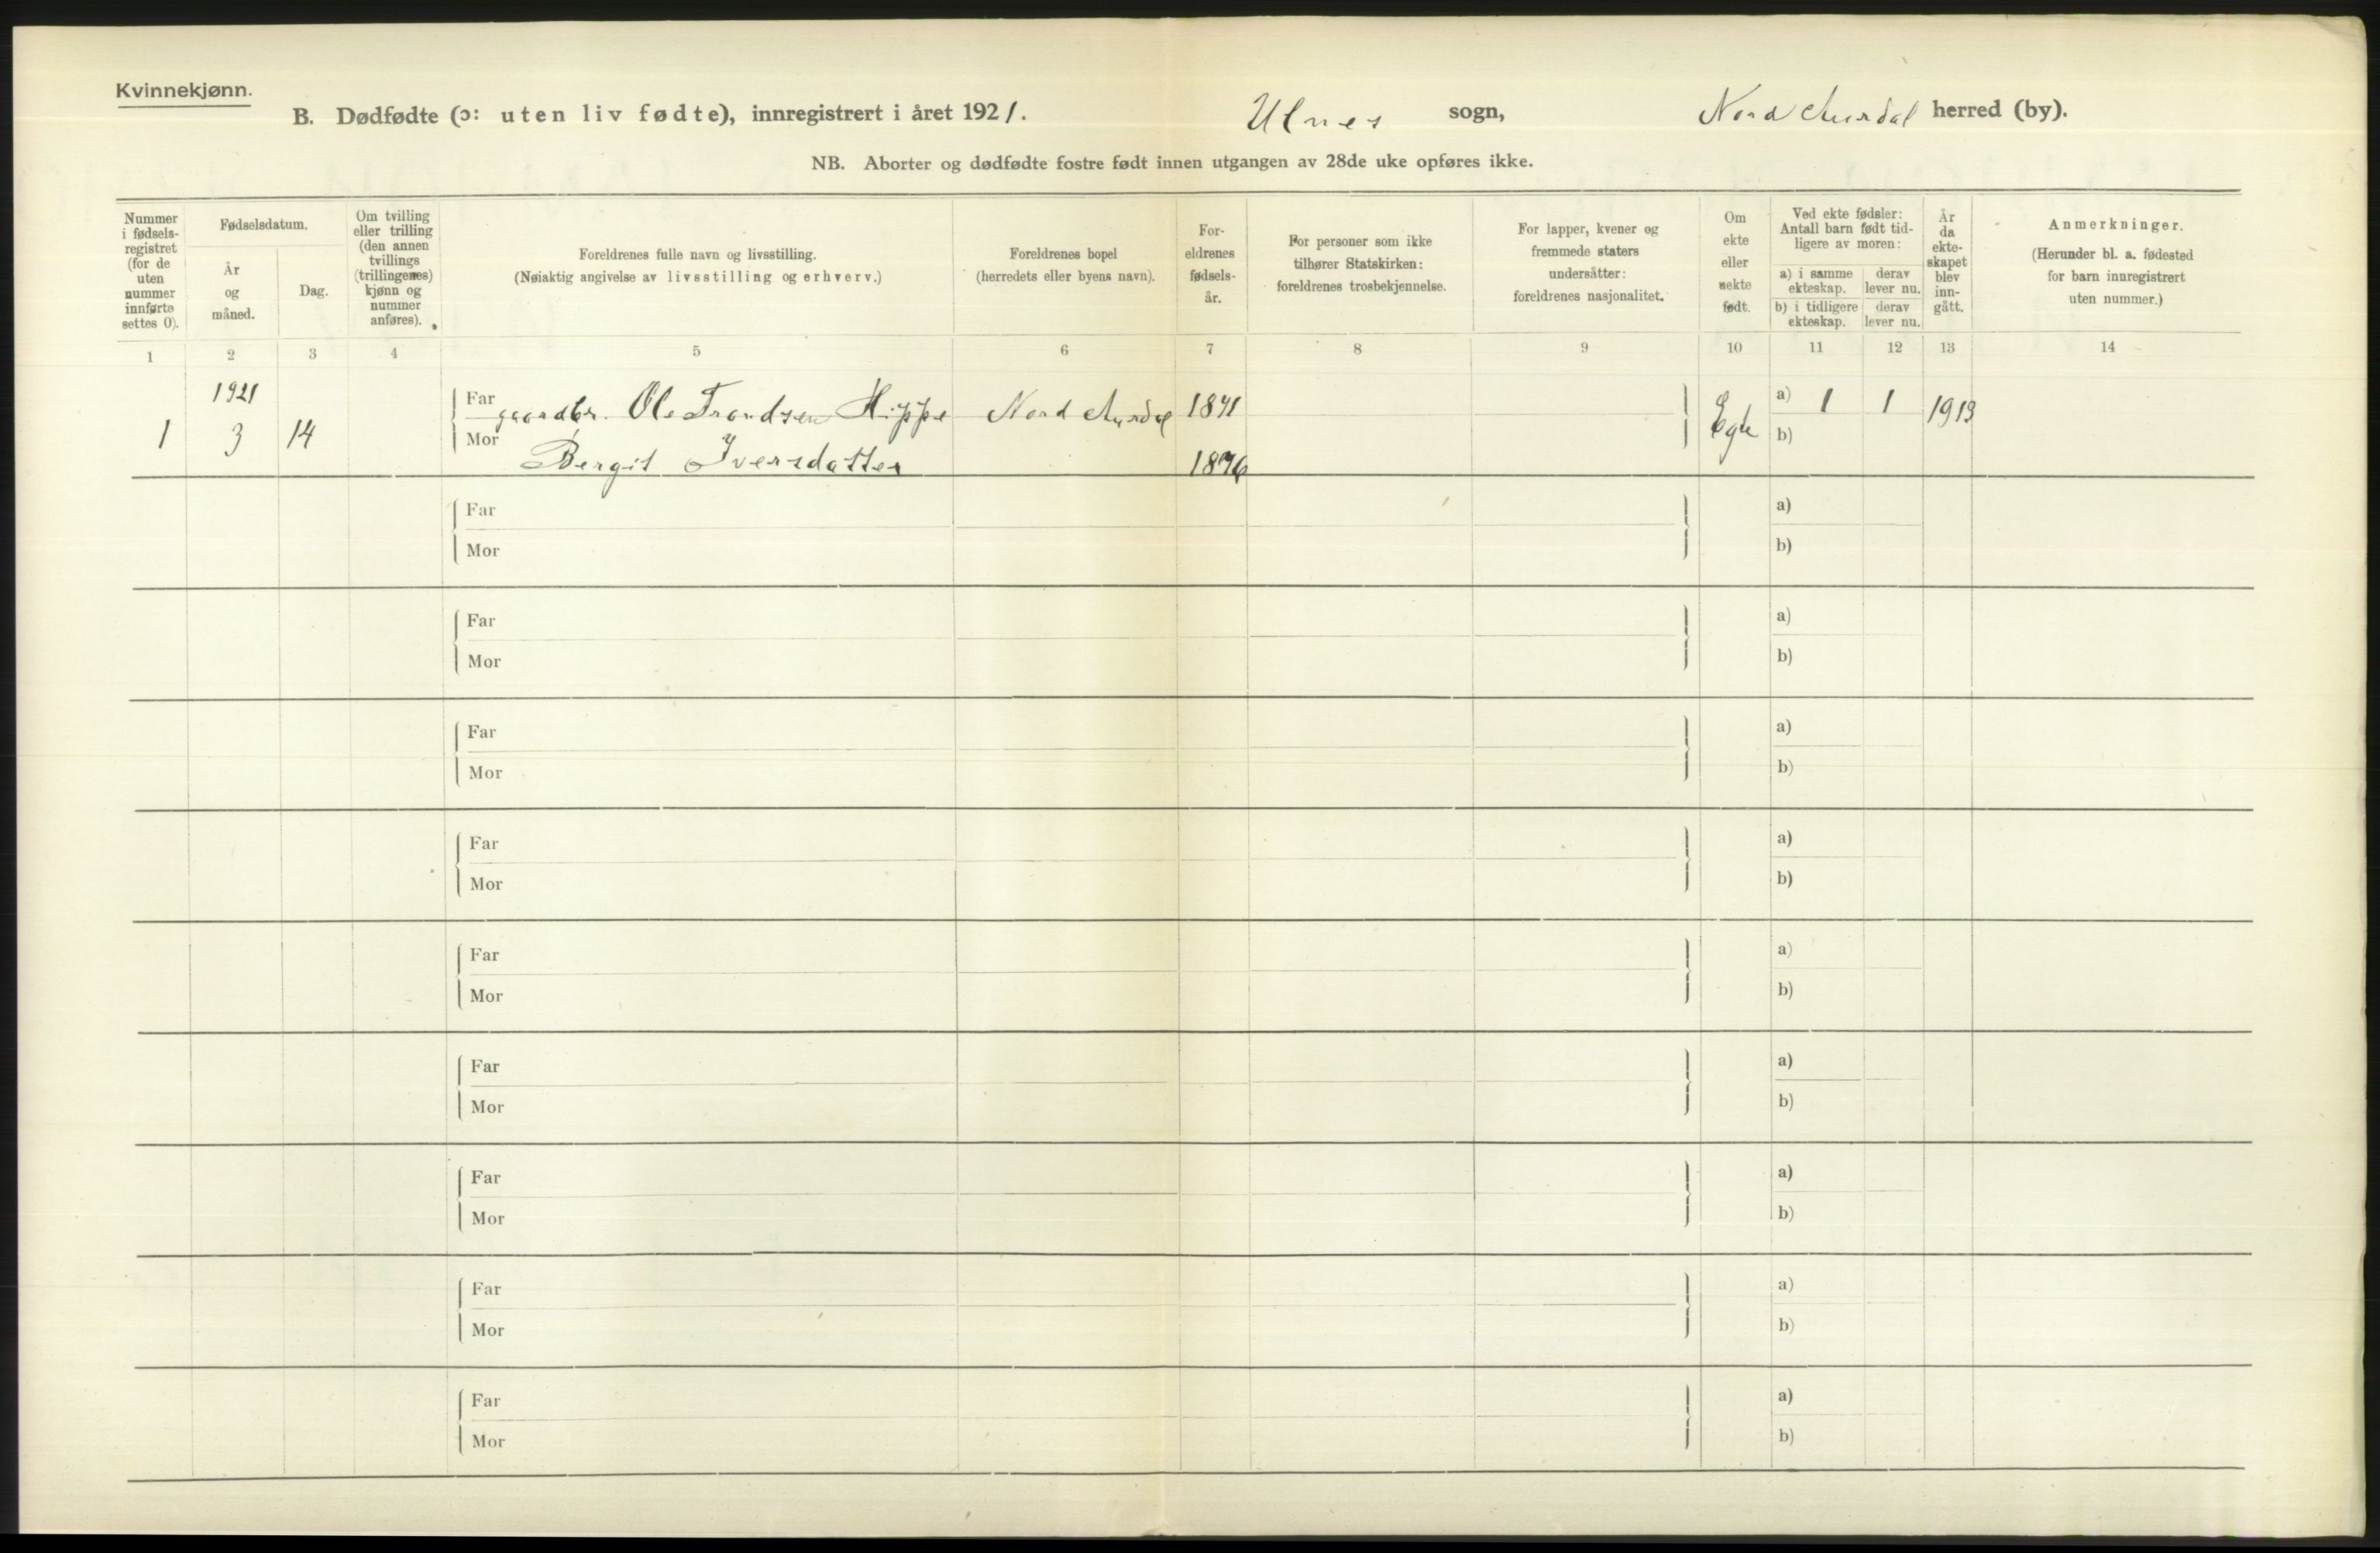 Kvinnekjønn.
B. Dødfødte (ɔ: uten liv fødte), innregistrert i året 1921. Ulnes sogn, Nord Aurdal herred (by).
NB. Aborter og dødfødte fostre født innen utgangen av 28de uke opføres ikke.
Nummer i fødsels- registret (for de uten nummer innførte settes 0).
Fødselsdatum.
År og måned.
Dag.
Om tvilling eller trilling (den annen tvillings (trillingenes) kjønn og nummer anføres).
Foreldrenes fulle navn og livsstilling.
(Nøiaktig angivelse av livsstilling og erhverv.)
Foreldrenes bopel
(herredets eller byens navn).
For- eldrenes fødsels- år.
For personer som ikke tilhører Statskirken: foreldrenes trosbekjennelse.
For lapper, kvener og fremmede staters undersåtter: foreldrenes nasjonalitet.
Om ekte eller uekte født.
Ved ekte fødsler: Antall barn født tid- ligere av moren:
a) i samme ekteskap.
derav lever nu.
b) i tidligere ekteskap.
derav lever nu.
År da ekte- skapet blev inn- gått.
Anmerkninger.
(Herunder bl. a. fødested for barn innregistrert uten nummer.)
1 2 3 4 5 6 7 8 9 10 11 12 13 14
1921
Far gaardbr. Ole Trondsen Hippe Nord Aurdal 1871 a) 1 1 1913
1 3 14 Egte
Mor Bergit Iversdatter 1876 b)
Far a)
Mor b)
Far a)
Mor b)
Far a)
Mor b)
Far a)
Mor b)
Far a)
Mor b)
Far a)
Mor b)
Far a)
Mor b)
Far a)
Mor b)
Far a)
Mor b)